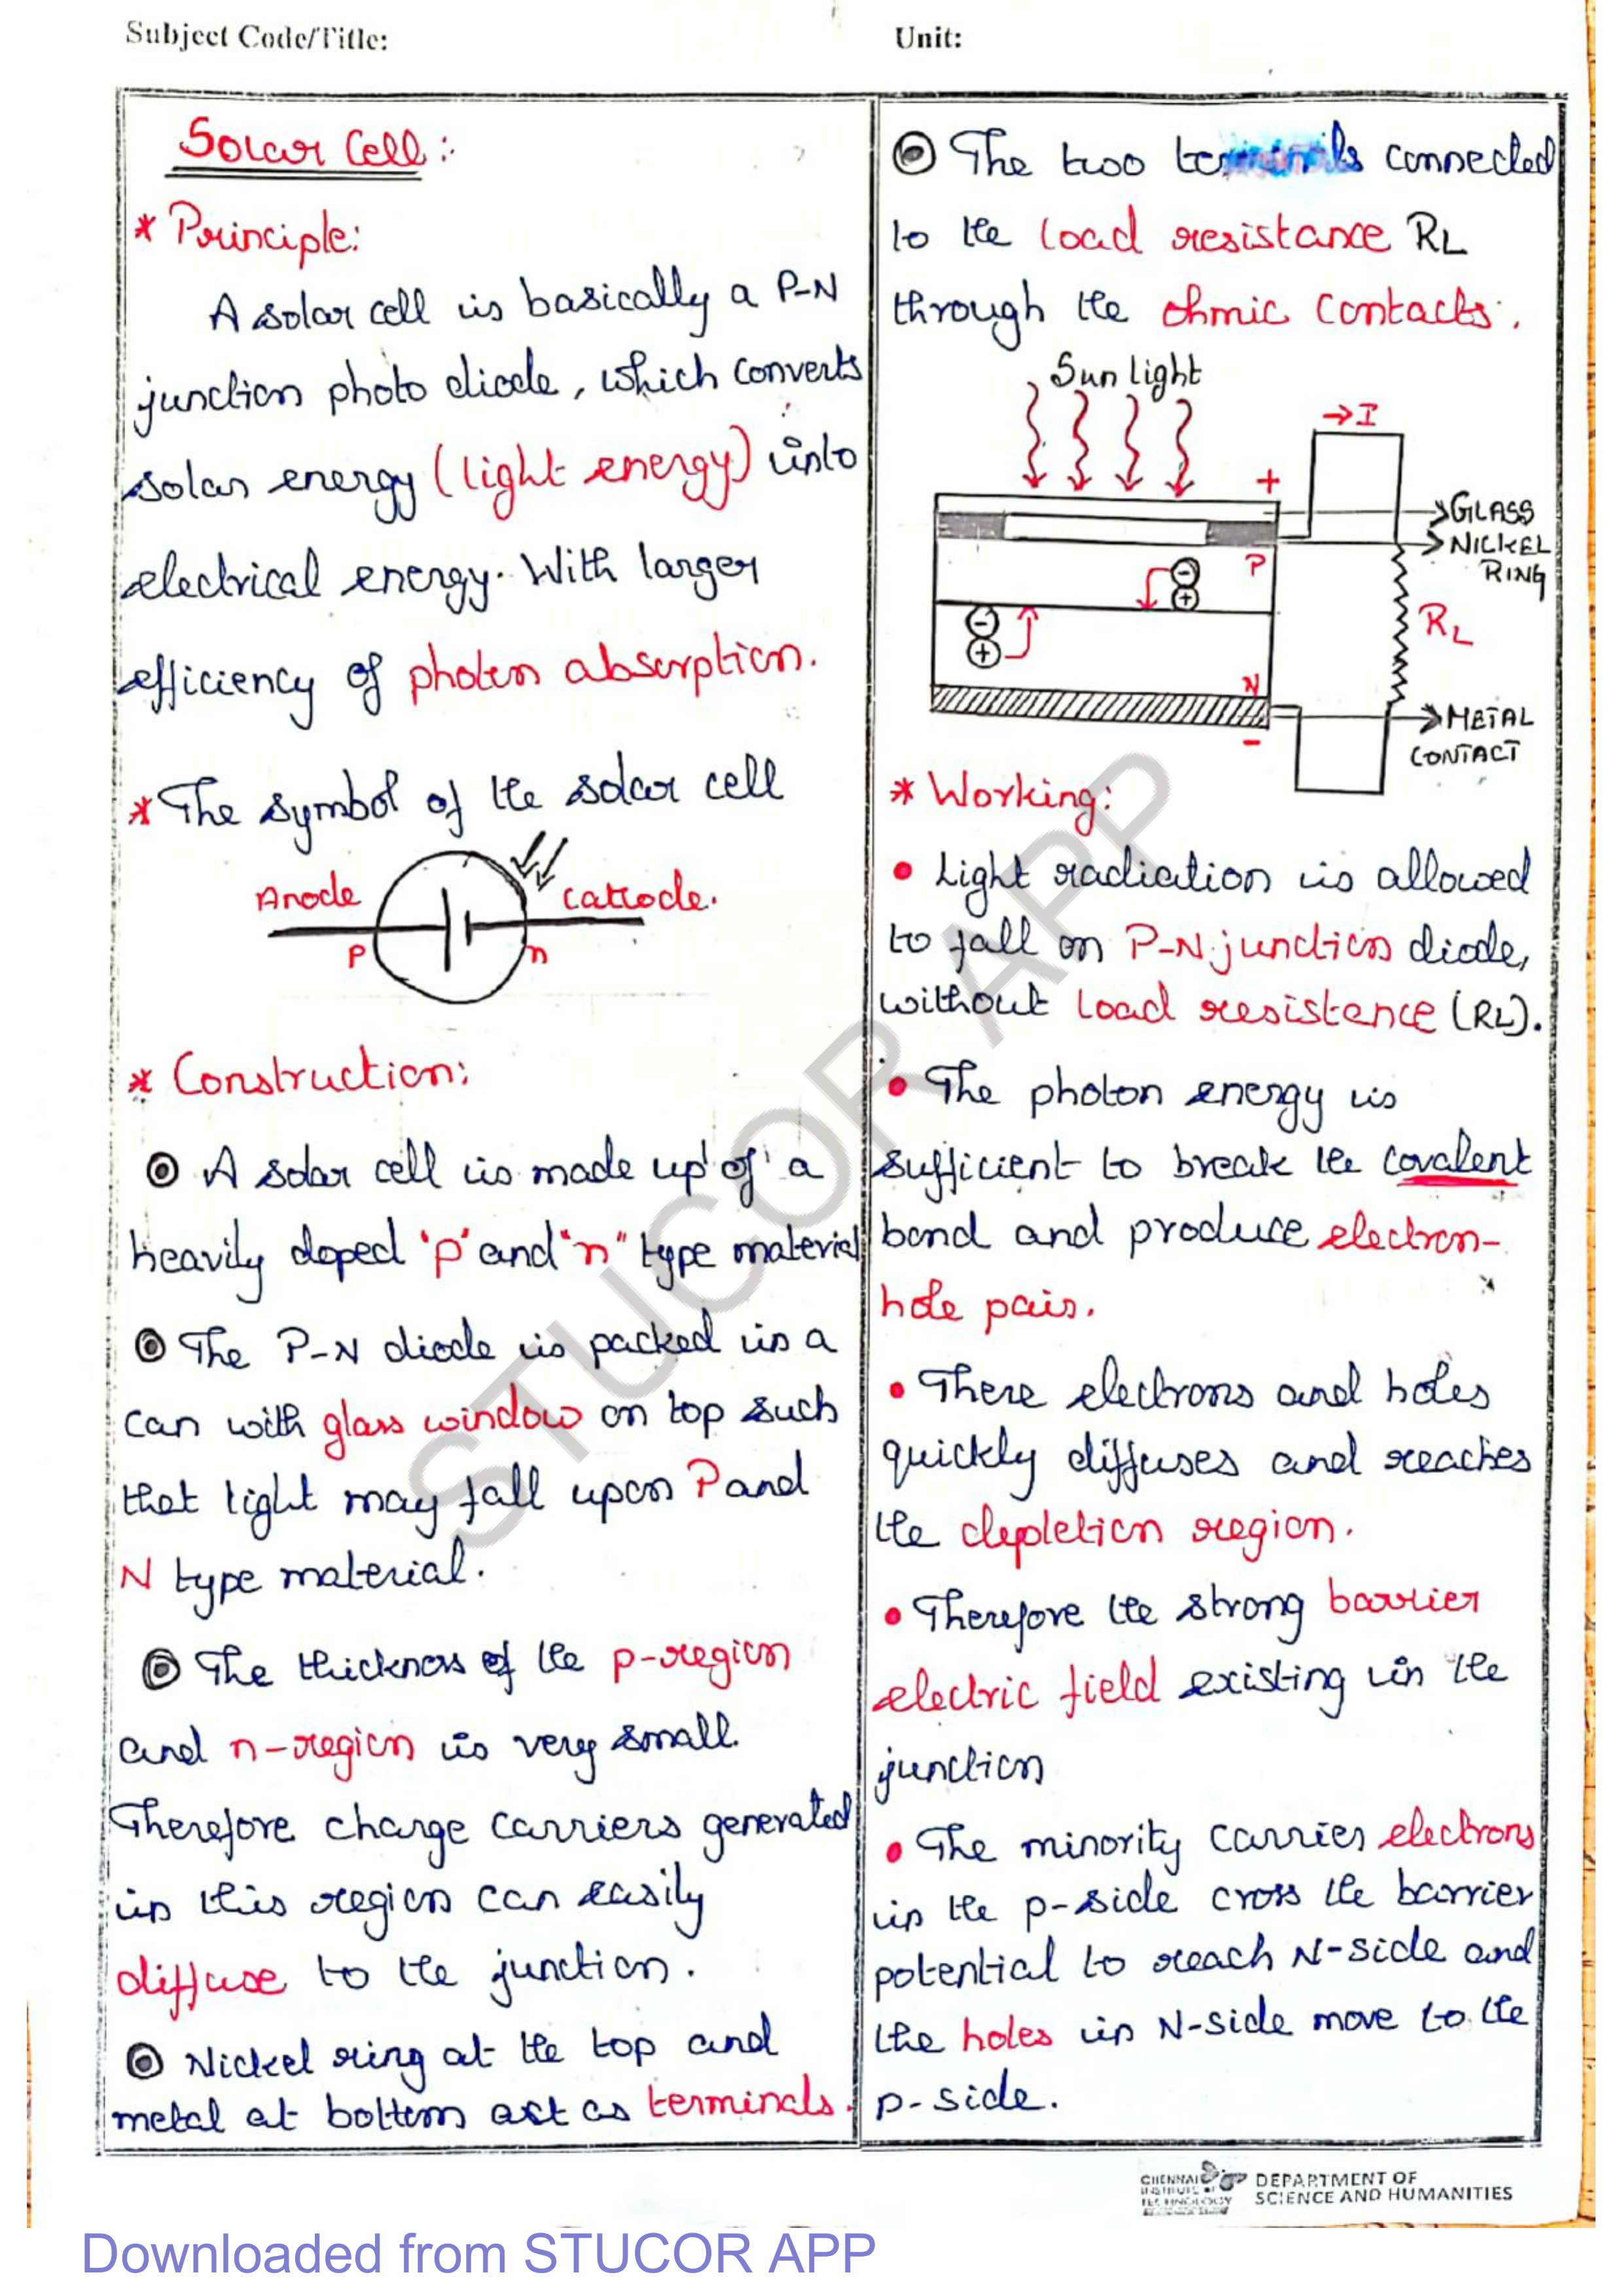 Subject Code/Title:
Unit:
Solar Cell:
* Principle:
A solar cell is basically a P-N
junction photo diode, which converts
solar energy (light energy) into
electrical energy. With larger
efficiency of photon absorption.
* The symbol of the solar cell
Anode
Cathode.
P
n
* Construction:
A solar cell is made up of a
heavily doped 'p' and "n" type material
The P-N diode is packed in a
can with glass window on top such
that light may fall upon P and
N type material.
The thickness of the p-region
and n-region is very small.
Therefore charge carriers generated
in this region can easily
diffuse to the junction.
Nickel ring at the top and
metal at bottom act as terminals.
The two terminals connected
to the load resistance RL
through the ohmic contacts.
Sun light
→I
+
GLASS
NICKEL
RING
P
-
+
-
+
RL
N
-
METAL
CONTACT
* Working:
• Light radiation is allowed
to fall on P-N junction diode,
without load resistance (RL).
• The photon energy is
sufficient to break the covalent
bond and produce electron-
hole pair.
• There electrons and holes
quickly diffuses and reaches
the depletion region.
• Therefore the strong barrier
electric field existing in the
junction
• The minority carrier electrons
in the p-side cross the barrier
potential to reach N-side and
the holes in N-side move to the
p-side.
STUCOR APP
CHENNAI
INSTITUTE OF
TECHNOLOGY
DEPARTMENT OF
SCIENCE AND HUMANITIES
Downloaded from STUCOR APP